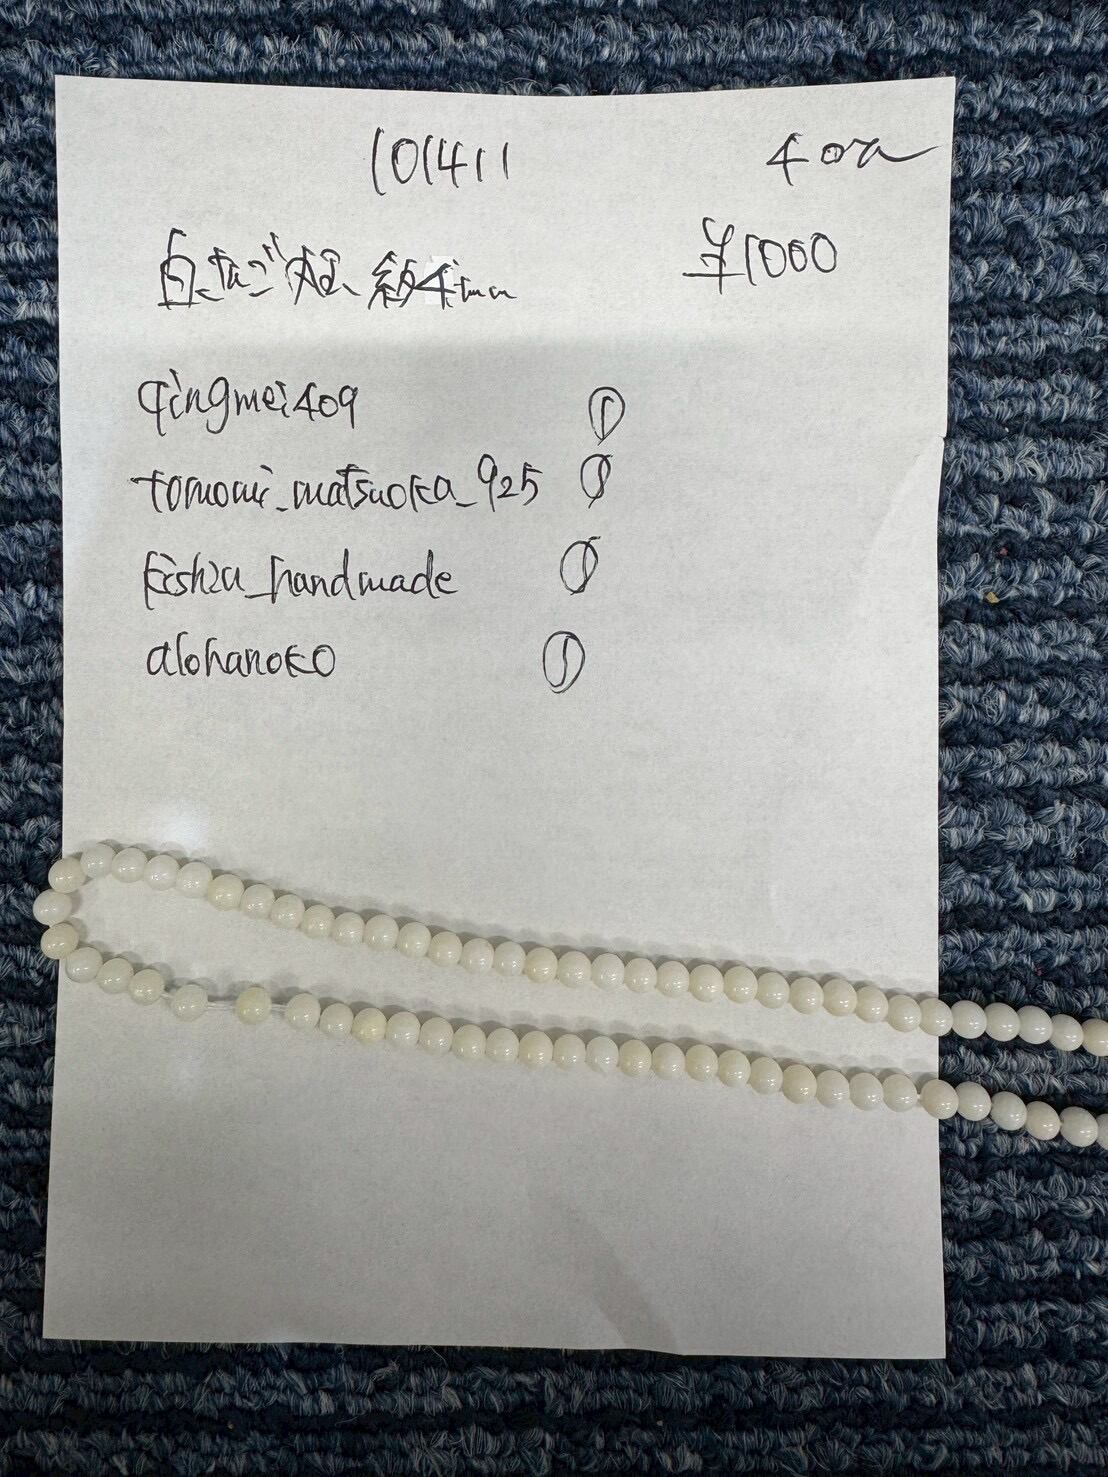 101411
¥1000
qingmei409 ①
tomomi_matsuoka_925 ①
kishiu_handmade ①
alohanoko ①